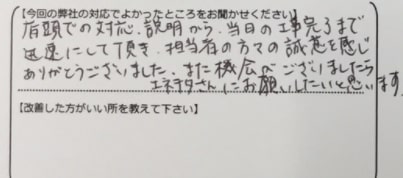 【今回の弊社の対応でよかったところをお聞かせください】
店頭での対応、説明から、当日の工事完了まで
迅速にして頂き、担当者の方々の誠意を感じ
ありがとうございました。また機会がございましたら
エネチタさんにお願いしたいと思います
【改善した方がいい所を教えて下さい】